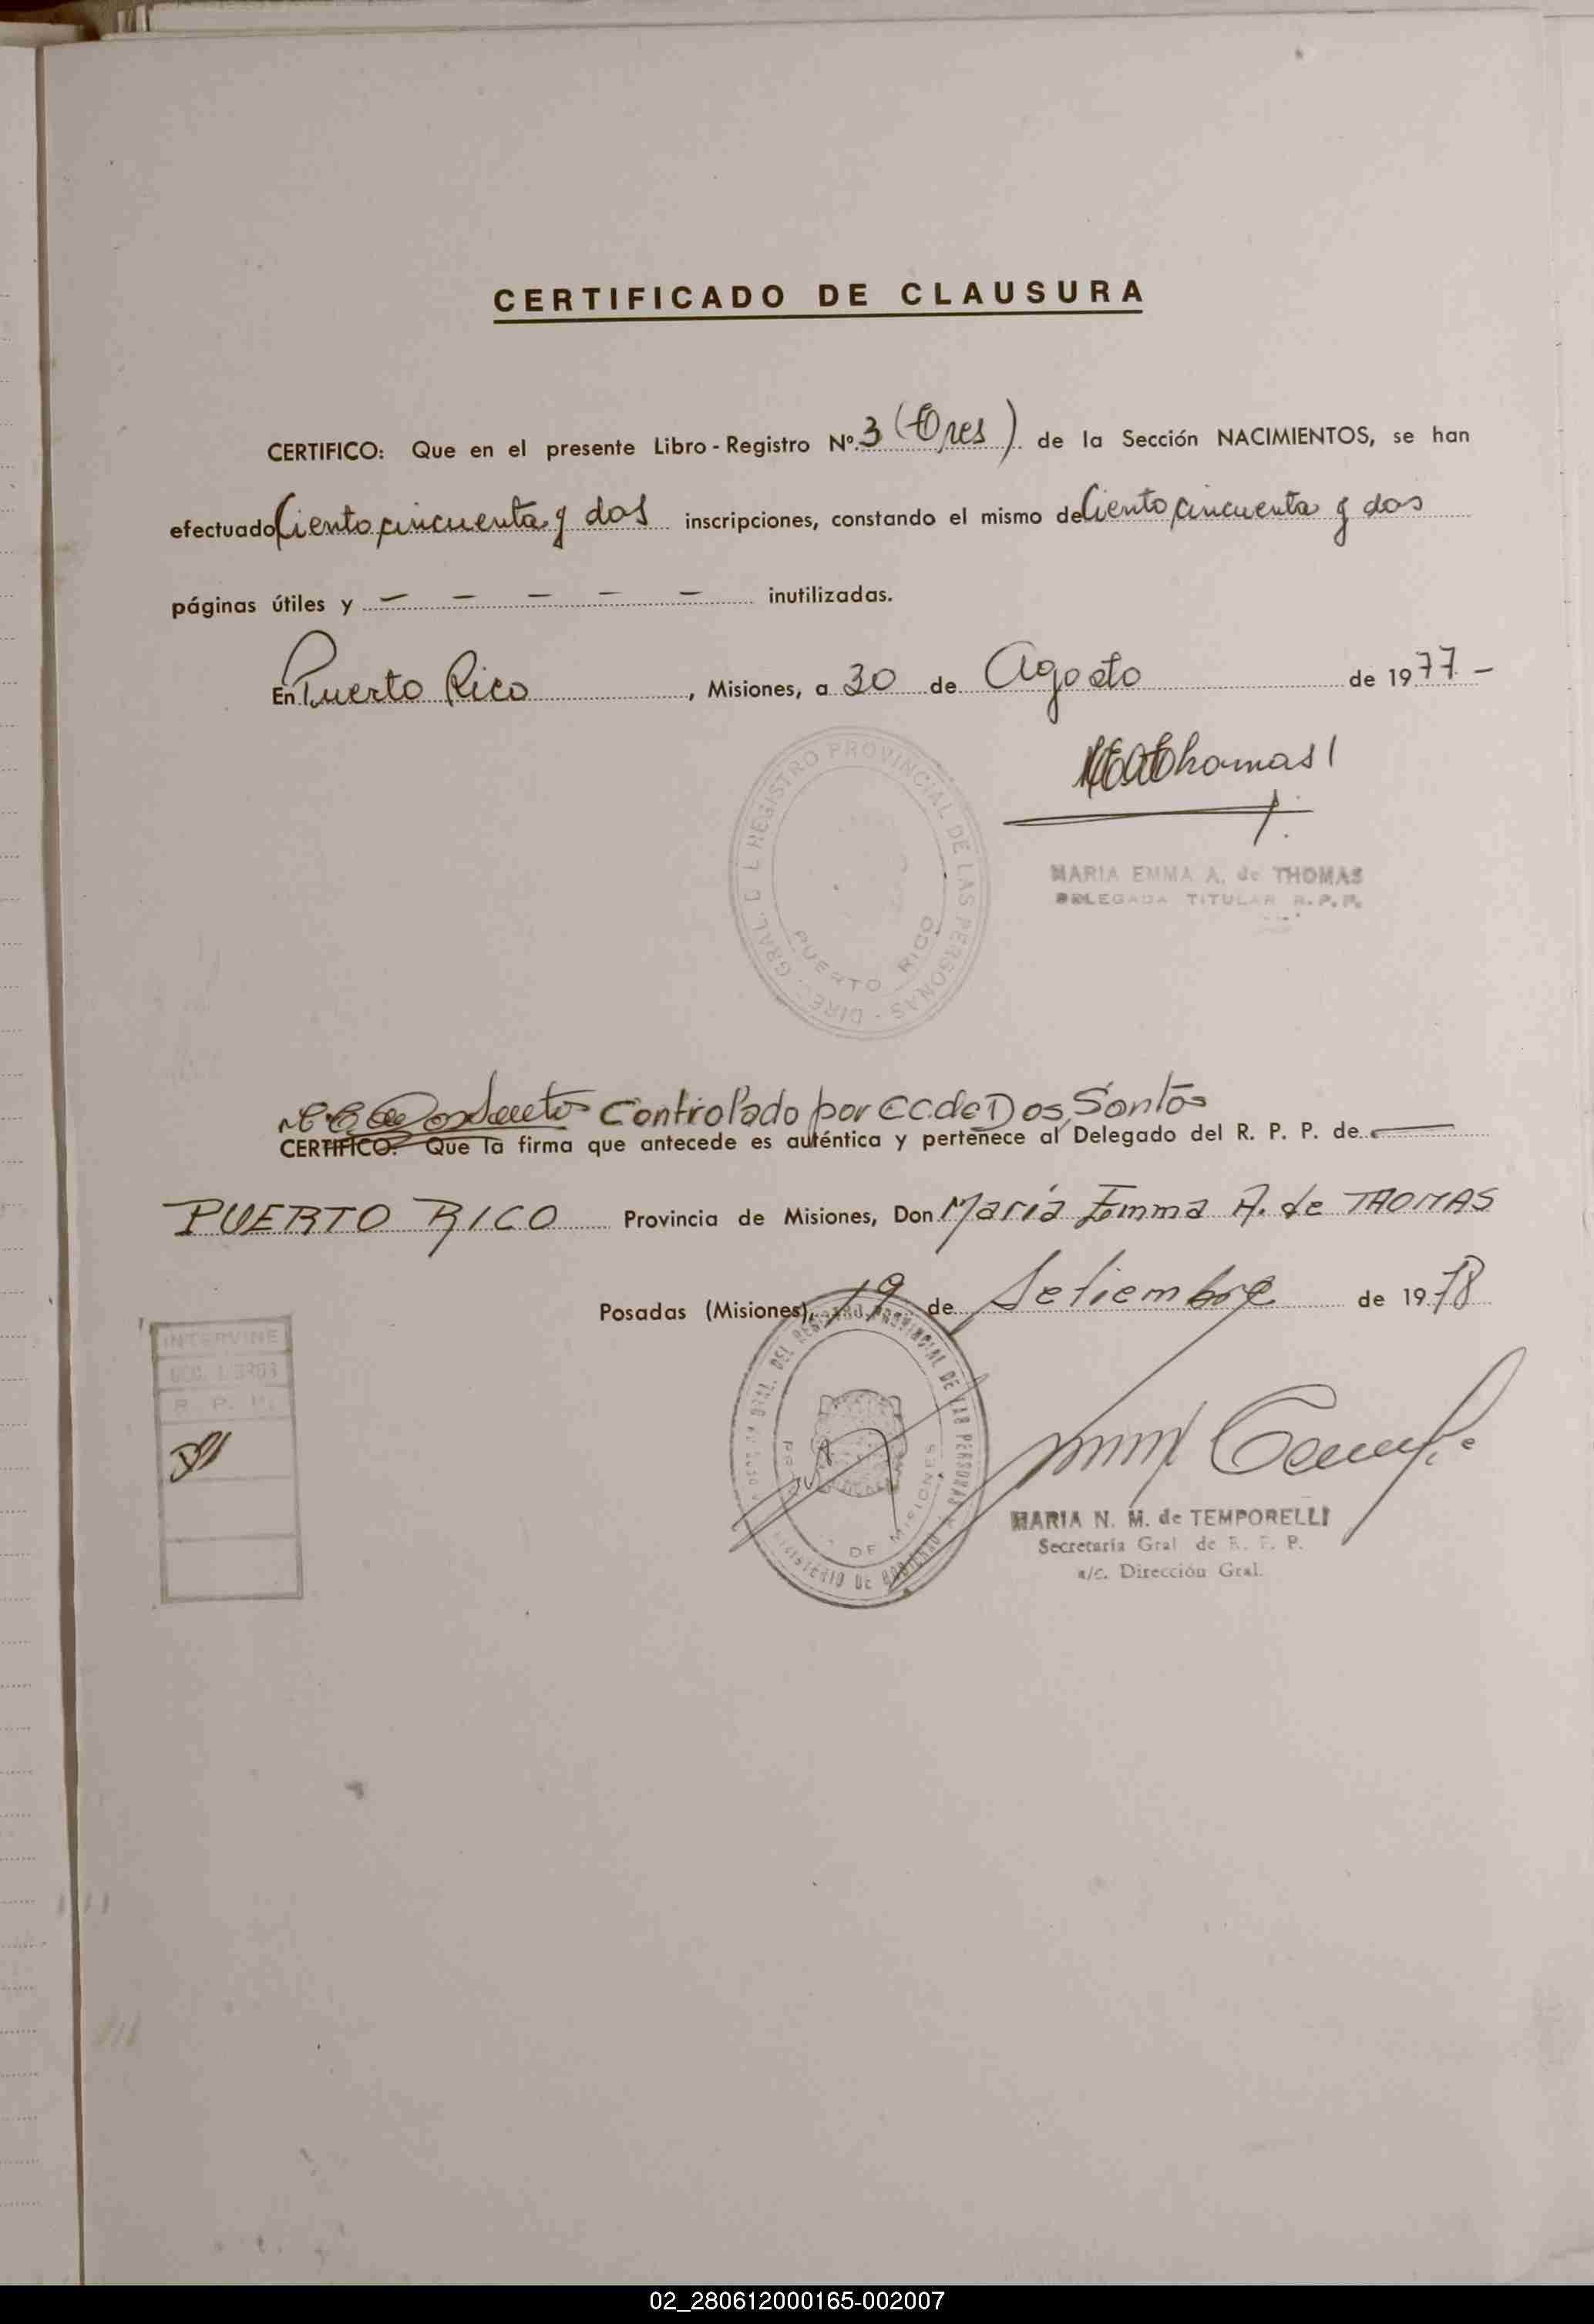 CERTIFICADO DE CLAUSURA
CERTIFICO: Que en el presente Libro-Registro Nº 3 (Tres) de la Sección NACIMIENTOS, se han
efectuado Ciento cincuenta y dos inscripciones, constando el mismo de Ciento cincuenta y dos
páginas útiles y — — — — — inutilizadas.
En Puerto Rico, Misiones, a 30 de Agosto de 1977 -
MEAThomas
MARIA EMMA A. de THOMAS
DELEGADA TITULAR R.P.P.
DIRE. GRAL. DEL REGISTRO PROVINCIAL DE LAS PERSONAS
PUERTO RICO
Controlado por CC.de Dos Santos
CERTIFICO: Que la firma que antecede es auténtica y pertenece al Delegado del R. P. P. de
PUERTO RICO Provincia de Misiones, Don María Emma A. de THOMAS
Posadas (Misiones), 19 de Setiembre de 1978
INTERVINE
R. P. P.
GRAL. DEL REGISTRO PROVINCIAL DE LAS PERSONAS
MINISTERIO DE GOBIERNO
DE MISIONES
MARIA N. M. de TEMPORELLI
Secretaria Gral de R. P. P.
a/c. Dirección Gral.
02_280612000165-002007